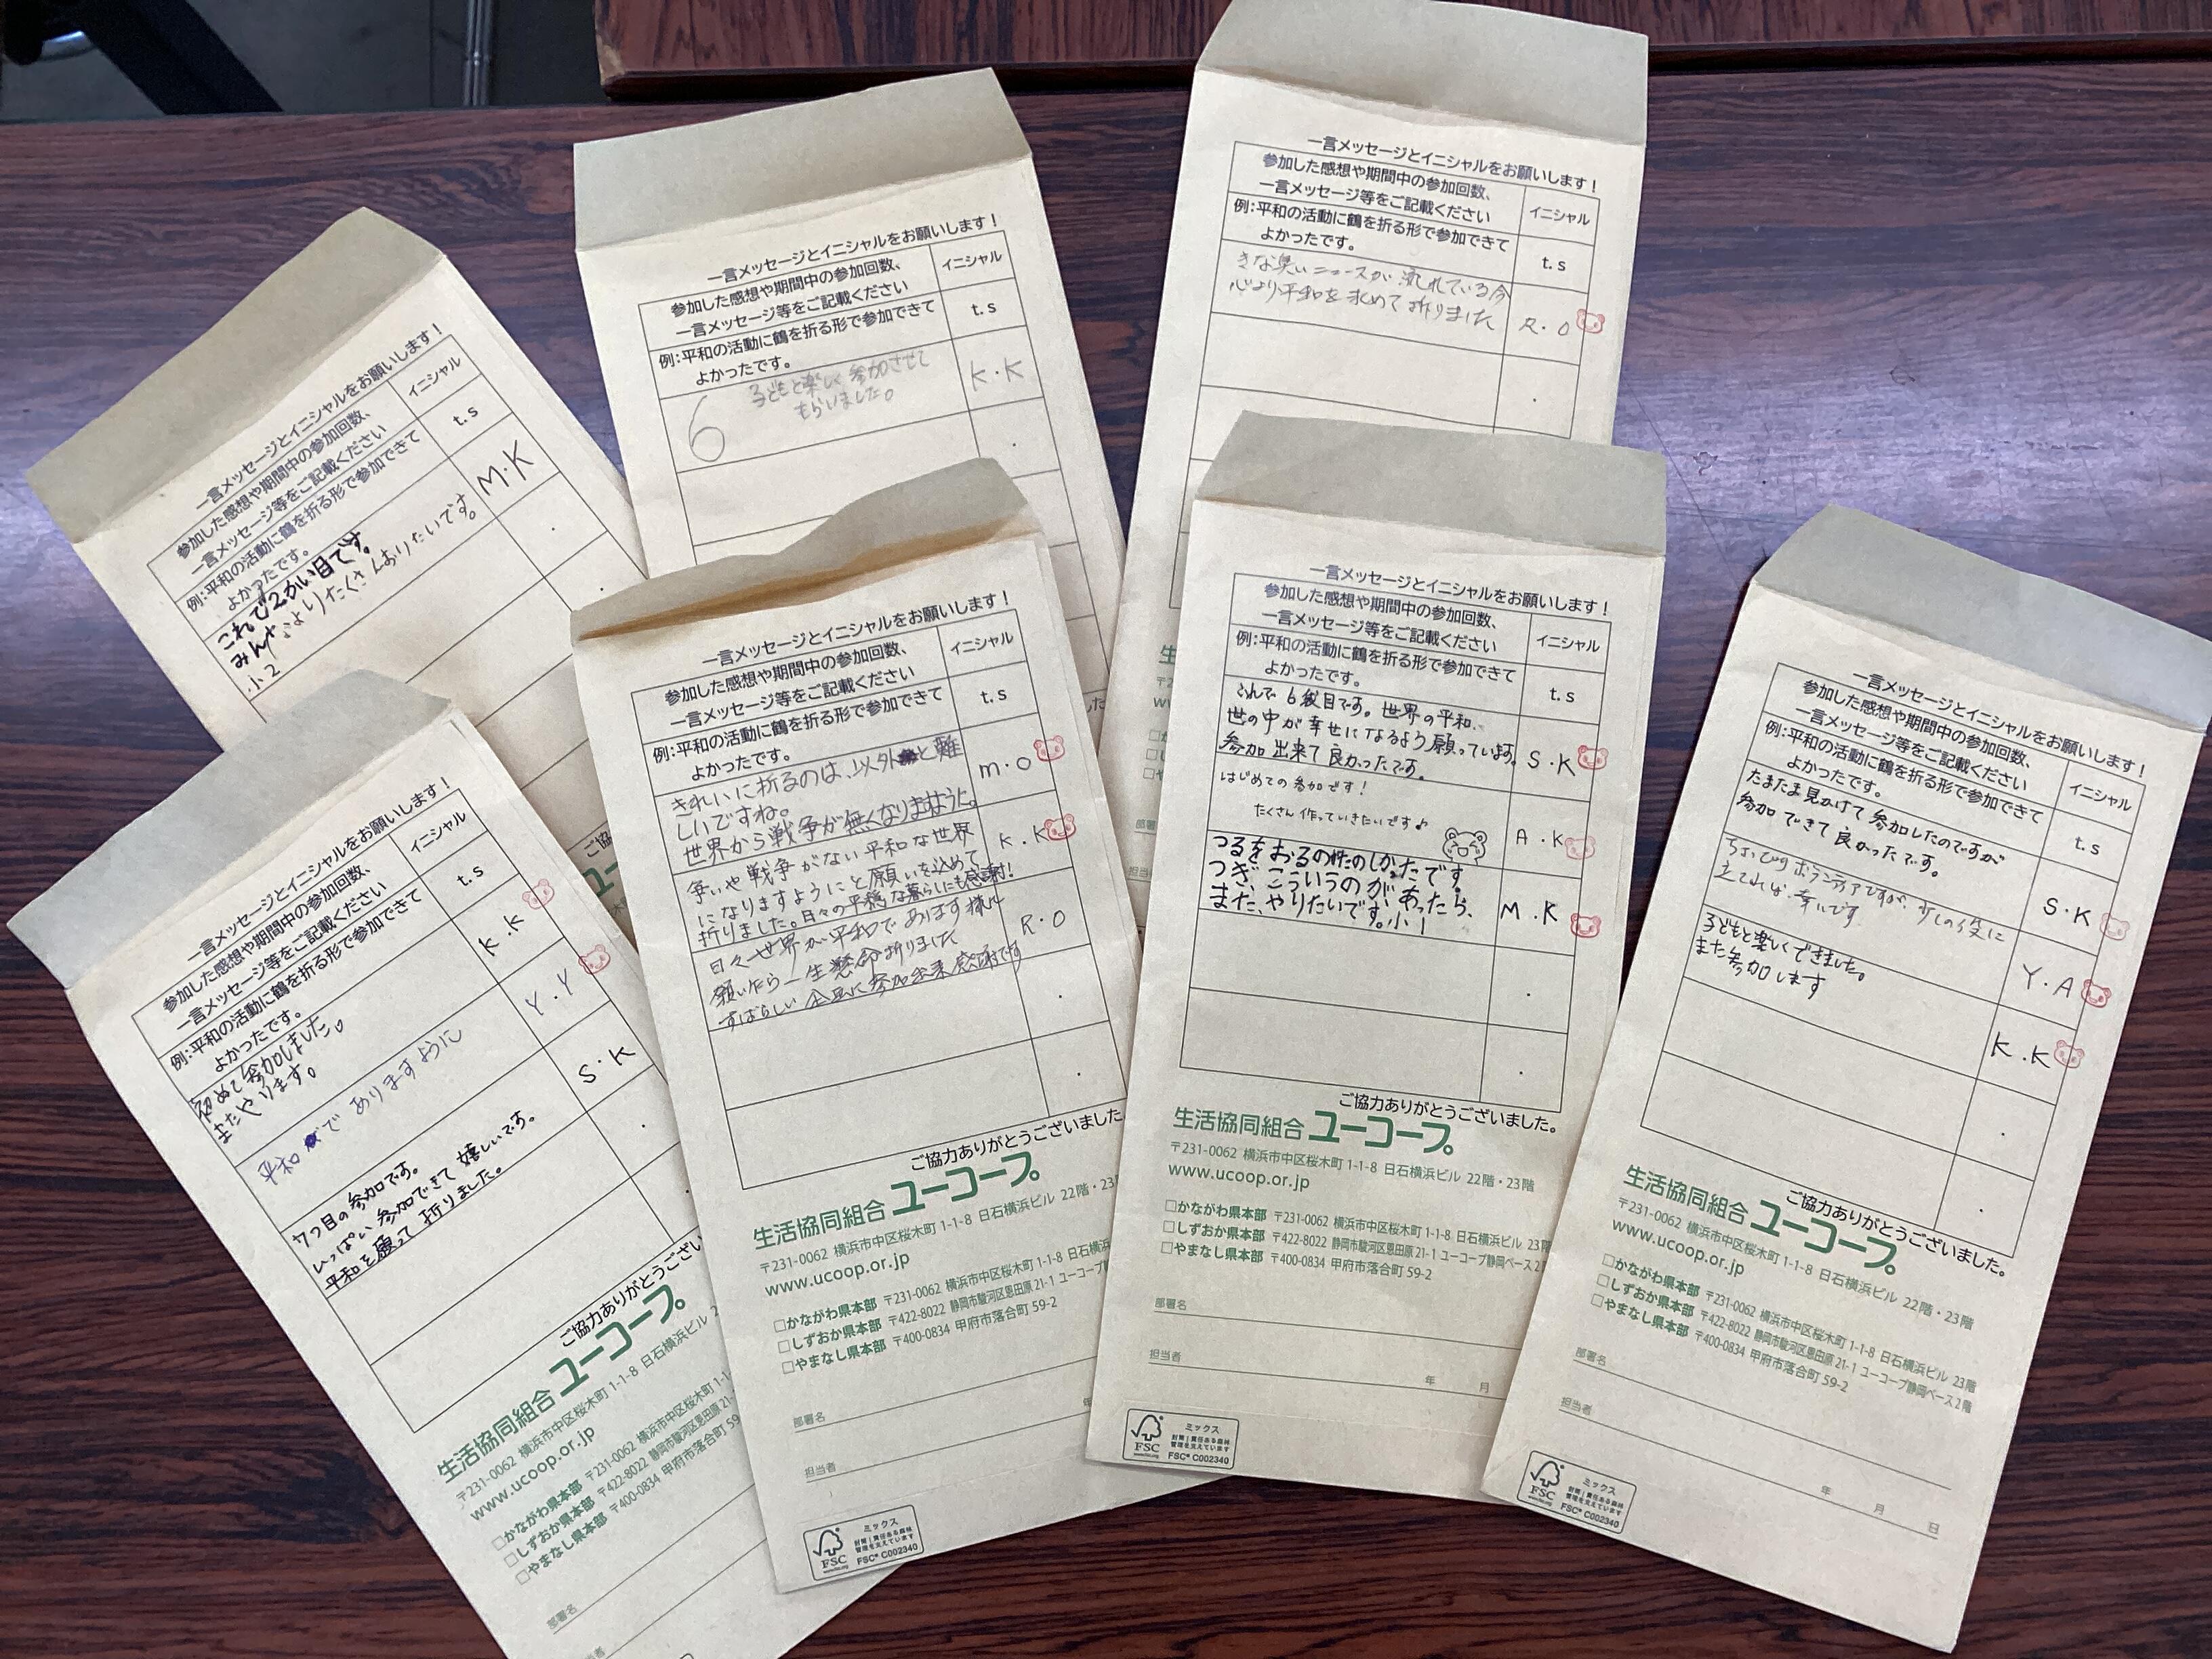 一言メッセージとイニシャルをお願いします！
参加した感想や期間中の参加回数、
一言メッセージ等をご記載ください
イニシャル
例：平和の活動に鶴を折る形で参加できて
よかったです。
t.s
これで2かい目です。
みんなよりたくさんおりたいです。
小2
M・K
一言メッセージとイニシャルをお願いします！
参加した感想や期間中の参加回数、
一言メッセージ等をご記載ください
イニシャル
例：平和の活動に鶴を折る形で参加できて
よかったです。
t.s
6
子どもと楽しく参加させて
もらいました。
K・K
一言メッセージとイニシャルをお願いします！
参加した感想や期間中の参加回数、
一言メッセージ等をご記載ください
イニシャル
例：平和の活動に鶴を折る形で参加できて
よかったです。
t.s
きな臭いニュースが流れている今
心より平和を求めて折りました
R・O
一言メッセージとイニシャルをお願いします！
参加した感想や期間中の参加回数、
一言メッセージ等をご記載ください
イニシャル
例：平和の活動に鶴を折る形で参加できて
よかったです。
t.s
初めて参加しました。
またやります。
K・K
平和でありますように
Y・Y
7つ目の参加です。
いっぱい参加できて嬉しいです。
平和を願って折りました。
S・K
ご協力ありがとうござい
生活協同組合 ユーコープ
〒231-0062 横浜市中区桜木町 1-1-8 日石横浜ビル 2
www.ucoop.or.jp
□かながわ県本部 〒231-0062 横浜市中区桜木町 1-1
□しずおか県本部 〒422-8022 静岡市駿河区恩田原 21-
□やまなし県本部 〒400-0834 甲府市落合町 59
部署名
一言メッセージとイニシャルをお願いします！
参加した感想や期間中の参加回数、
一言メッセージ等をご記載ください
イニシャル
例：平和の活動に鶴を折る形で参加できて
よかったです。
t.s
きれいに折るのは、以外と難
しいですね。
世界から戦争が無くなりますように。
m・o
争いや戦争がない平和な世界
になりますようにと願いを込めて
折りました。日々の平穏な暮らしにも感謝！
K・K
日々世界が平和であります様に
願い乍ら一生懸命折りました
すばらしい企画に参加出来感謝です
R・O
ご協力ありがとうございました
生活協同組合 ユーコープ
〒231-0062 横浜市中区桜木町 1-1-8 日石横浜ビル 22階・23
www.ucoop.or.jp
□かながわ県本部 〒231-0062 横浜市中区桜木町 1-1-8 日石横
□しずおか県本部 〒422-8022 静岡市駿河区恩田原 21-1 ユーコープ
□やまなし県本部 〒400-0834 甲府市落合町 59-2
部署名
年
担当者
FSC
ミックス
封筒｜責任ある森林
管理を支えています
FSC® C002340
一言メッセージとイニシャルをお願いします！
参加した感想や期間中の参加回数、
一言メッセージ等をご記載ください
イニシャル
例：平和の活動に鶴を折る形で参加できて
よかったです。
t.s
これで6袋目です。世界の平和、
世の中が幸せになるよう願っています。
参加出来て良かったです。
S・K
はじめての参加です！
たくさん作っていきたいです♪
A・K
つるをおるのがたのしかったです。
つぎ、こういうのがあったら、
また、やりたいです。小1
M・K
ご協力ありがとうございました。
生活協同組合 ユーコープ
〒231-0062 横浜市中区桜木町 1-1-8 日石横浜ビル 22階・23階
www.ucoop.or.jp
□かながわ県本部 〒231-0062 横浜市中区桜木町 1-1-8 日石横浜ビル 23階
□しずおか県本部 〒422-8022 静岡市駿河区恩田原 21-1 ユーコープ静岡ベース2
□やまなし県本部 〒400-0834 甲府市落合町 59-2
部署名
担当者
年 月
FSC
ミックス
封筒｜責任ある森林
管理を支えています
FSC® C002340
一言メッセージとイニシャルをお願いします！
参加した感想や期間中の参加回数、
一言メッセージ等をご記載ください
イニシャル
例：平和の活動に鶴を折る形で参加できて
よかったです。
t.s
たまたま見かけて参加したのですが
参加できて良かったです。
S・K
ちょいボランティアですが、少しの役に
立てれば幸いです
Y・A
子どもと楽しくできました。
また参加します
K・K
ご協力ありがとうございました。
生活協同組合 ユーコープ
〒231-0062 横浜市中区桜木町 1-1-8 日石横浜ビル 22階・23階
www.ucoop.or.jp
□かながわ県本部 〒231-0062 横浜市中区桜木町 1-1-8 日石横浜ビル 23階
□しずおか県本部 〒422-8022 静岡市駿河区恩田原 21-1 ユーコープ静岡ベース2階
□やまなし県本部 〒400-0834 甲府市落合町 59-2
部署名
担当者
年 月 日
FSC
ミックス
封筒｜責任ある森林
管理を支えています
FSC® C002340